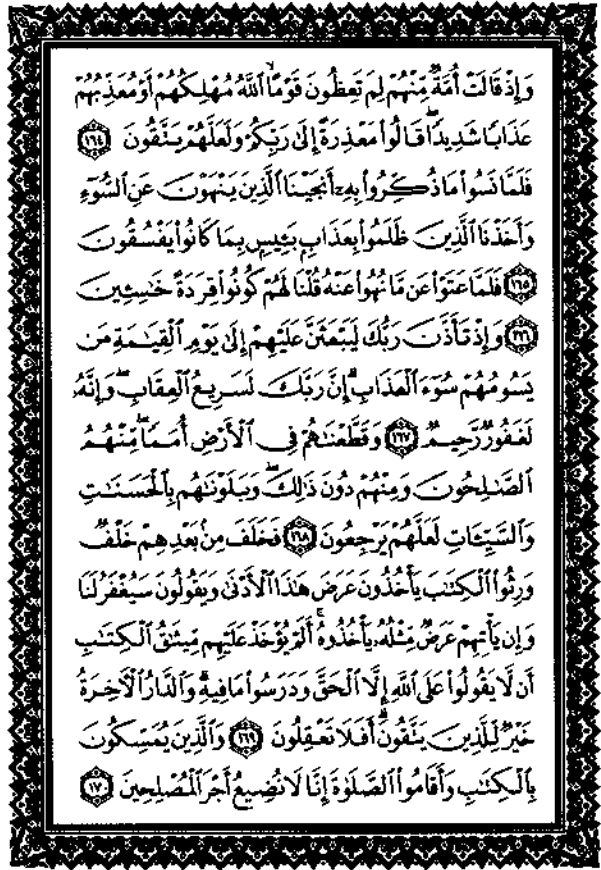 وَإِذْ قَالَتْ أُمَّةٌ مِّنْهُمْ لِمَ تَعِظُونَ قَوْمًا ٱللَّهُ مُهْلِكُهُمْ أَوْ مُعَذِّبُهُمْ
عَذَابًا شَدِيدًا ۖ قَالُوا۟ مَعْذِرَةً إِلَىٰ رَبِّكُمْ وَلَعَلَّهُمْ يَتَّقُونَ ١٦٤
فَلَمَّا نَسُوا۟ مَا ذُكِّرُوا۟ بِهِۦٓ أَنجَيْنَا ٱلَّذِينَ يَنْهَوْنَ عَنِ ٱلسُّوٓءِ
وَأَخَذْنَا ٱلَّذِينَ ظَلَمُوا۟ بِعَذَابٍۭ بَـِٔيسٍۭ بِمَا كَانُوا۟ يَفْسُقُونَ
١٦٥ فَلَمَّا عَتَوْا۟ عَن مَّا نُهُوا۟ عَنْهُ قُلْنَا لَهُمْ كُونُوا۟ قِرَدَةً خَٰسِـِٔينَ
١٦٦ وَإِذْ تَأَذَّنَ رَبُّكَ لَيَبْعَثَنَّ عَلَيْهِمْ إِلَىٰ يَوْمِ ٱلْقِيَٰمَةِ مَن
يَسُومُهُمْ سُوٓءَ ٱلْعَذَابِ ۗ إِنَّ رَبَّكَ لَسَرِيعُ ٱلْعِقَابِ ۖ وَإِنَّهُۥ
لَغَفُورٌ رَّحِيمٌ ١٦٧ وَقَطَّعْنَٰهُمْ فِى ٱلْأَرْضِ أُمَمًا ۖ مِّنْهُمُ
ٱلصَّٰلِحُونَ وَمِنْهُمْ دُونَ ذَٰلِكَ ۖ وَبَلَوْنَٰهُم بِٱلْحَسَنَٰتِ
وَٱلسَّيِّـَٔاتِ لَعَلَّهُمْ يَرْجِعُونَ ١٦٨ فَخَلَفَ مِنۢ بَعْدِهِمْ خَلْفٌ
وَرِثُوا۟ ٱلْكِتَٰبَ يَأْخُذُونَ عَرَضَ هَٰذَا ٱلْأَدْنَىٰ وَيَقُولُونَ سَيُغْفَرُ لَنَا
وَإِن يَأْتِهِمْ عَرَضٌ مِّثْلُهُۥ يَأْخُذُوهُ ۚ أَلَمْ يُؤْخَذْ عَلَيْهِم مِّيثَٰقُ ٱلْكِتَٰبِ
أَن لَّا يَقُولُوا۟ عَلَى ٱللَّهِ إِلَّا ٱلْحَقَّ وَدَرَسُوا۟ مَا فِيهِ ۗ وَٱلدَّارُ ٱلْءَاخِرَةُ
خَيْرٌ لِّلَّذِينَ يَتَّقُونَ ۗ أَفَلَا تَعْقِلُونَ ١٦٩ وَٱلَّذِينَ يُمَسِّكُونَ
بِٱلْكِتَٰبِ وَأَقَامُوا۟ ٱلصَّلَوٰةَ إِنَّا لَا نُضِيعُ أَجْرَ ٱلْمُصْلِحِينَ ١٧٠